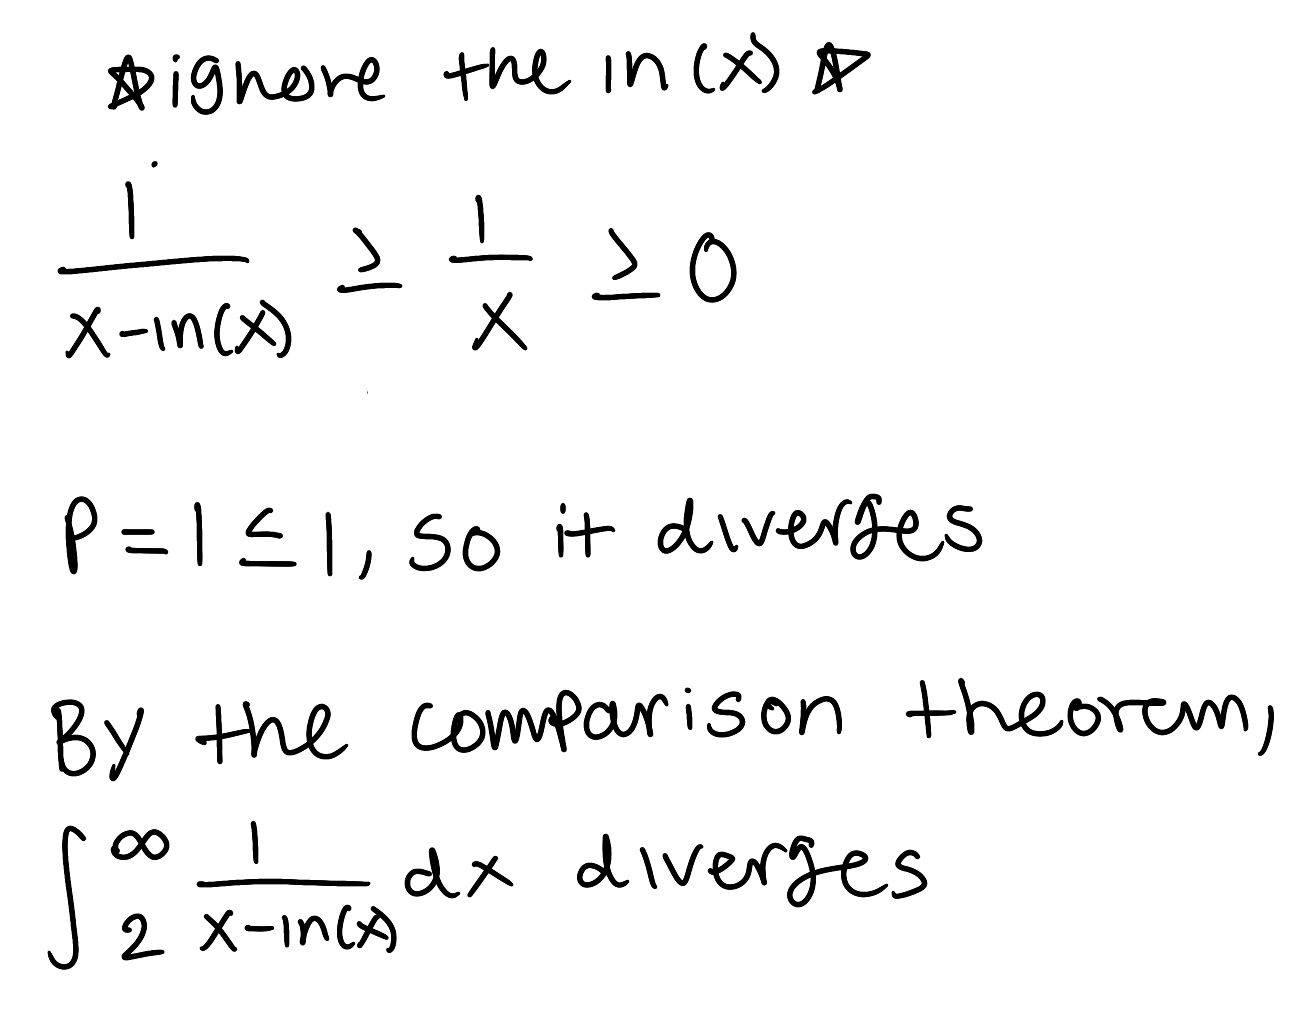 ☆ignore the ln(x)☆
1/(x-ln(x)) ≥ 1/x ≥ 0
P=1≤1, so it diverges
By the comparison theorem,
∫₂^∞ 1/(x-ln(x)) dx diverges